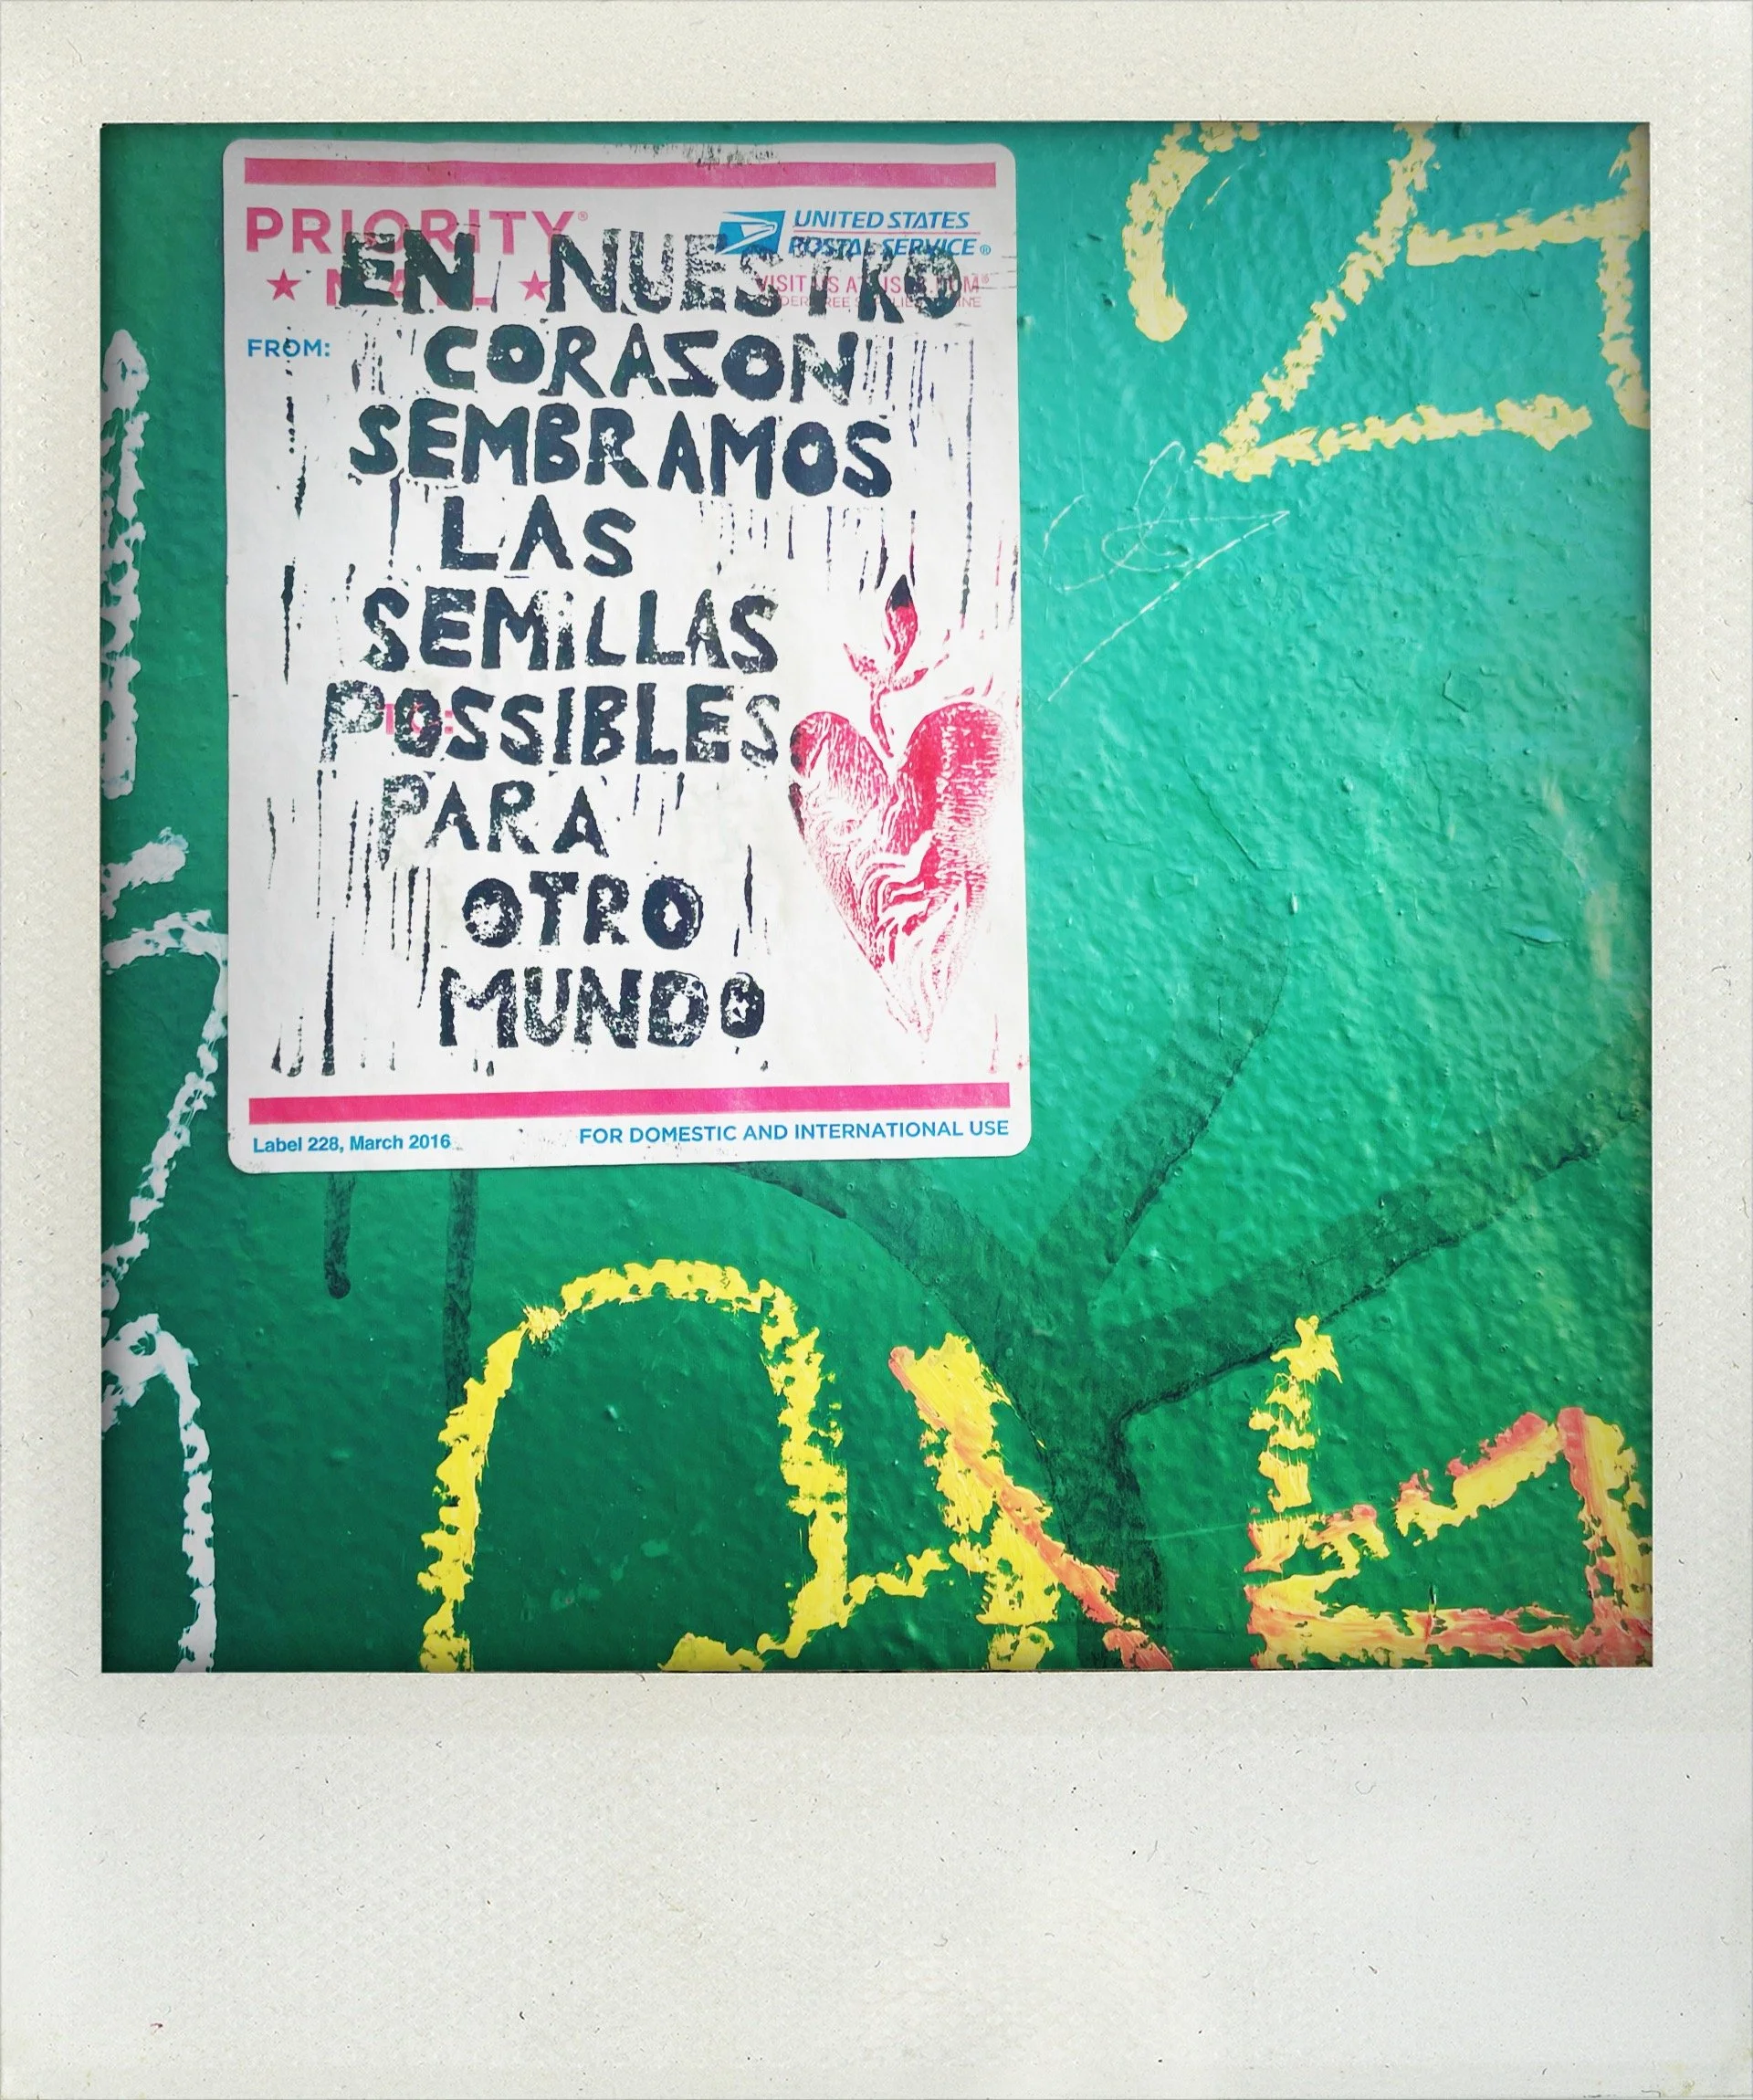 PRIORITY®
★ MAIL ★
UNITED STATES
POSTAL SERVICE®
VISIT US AT USPS.COM®
FROM:
EN NUESTRO
CORASON
SEMBRAMOS
LAS
SEMiLLAS
POSSIBLES
TO:
PARA
OTRO
MUNDO
Label 228, March 2016
FOR DOMESTIC AND INTERNATIONAL USE